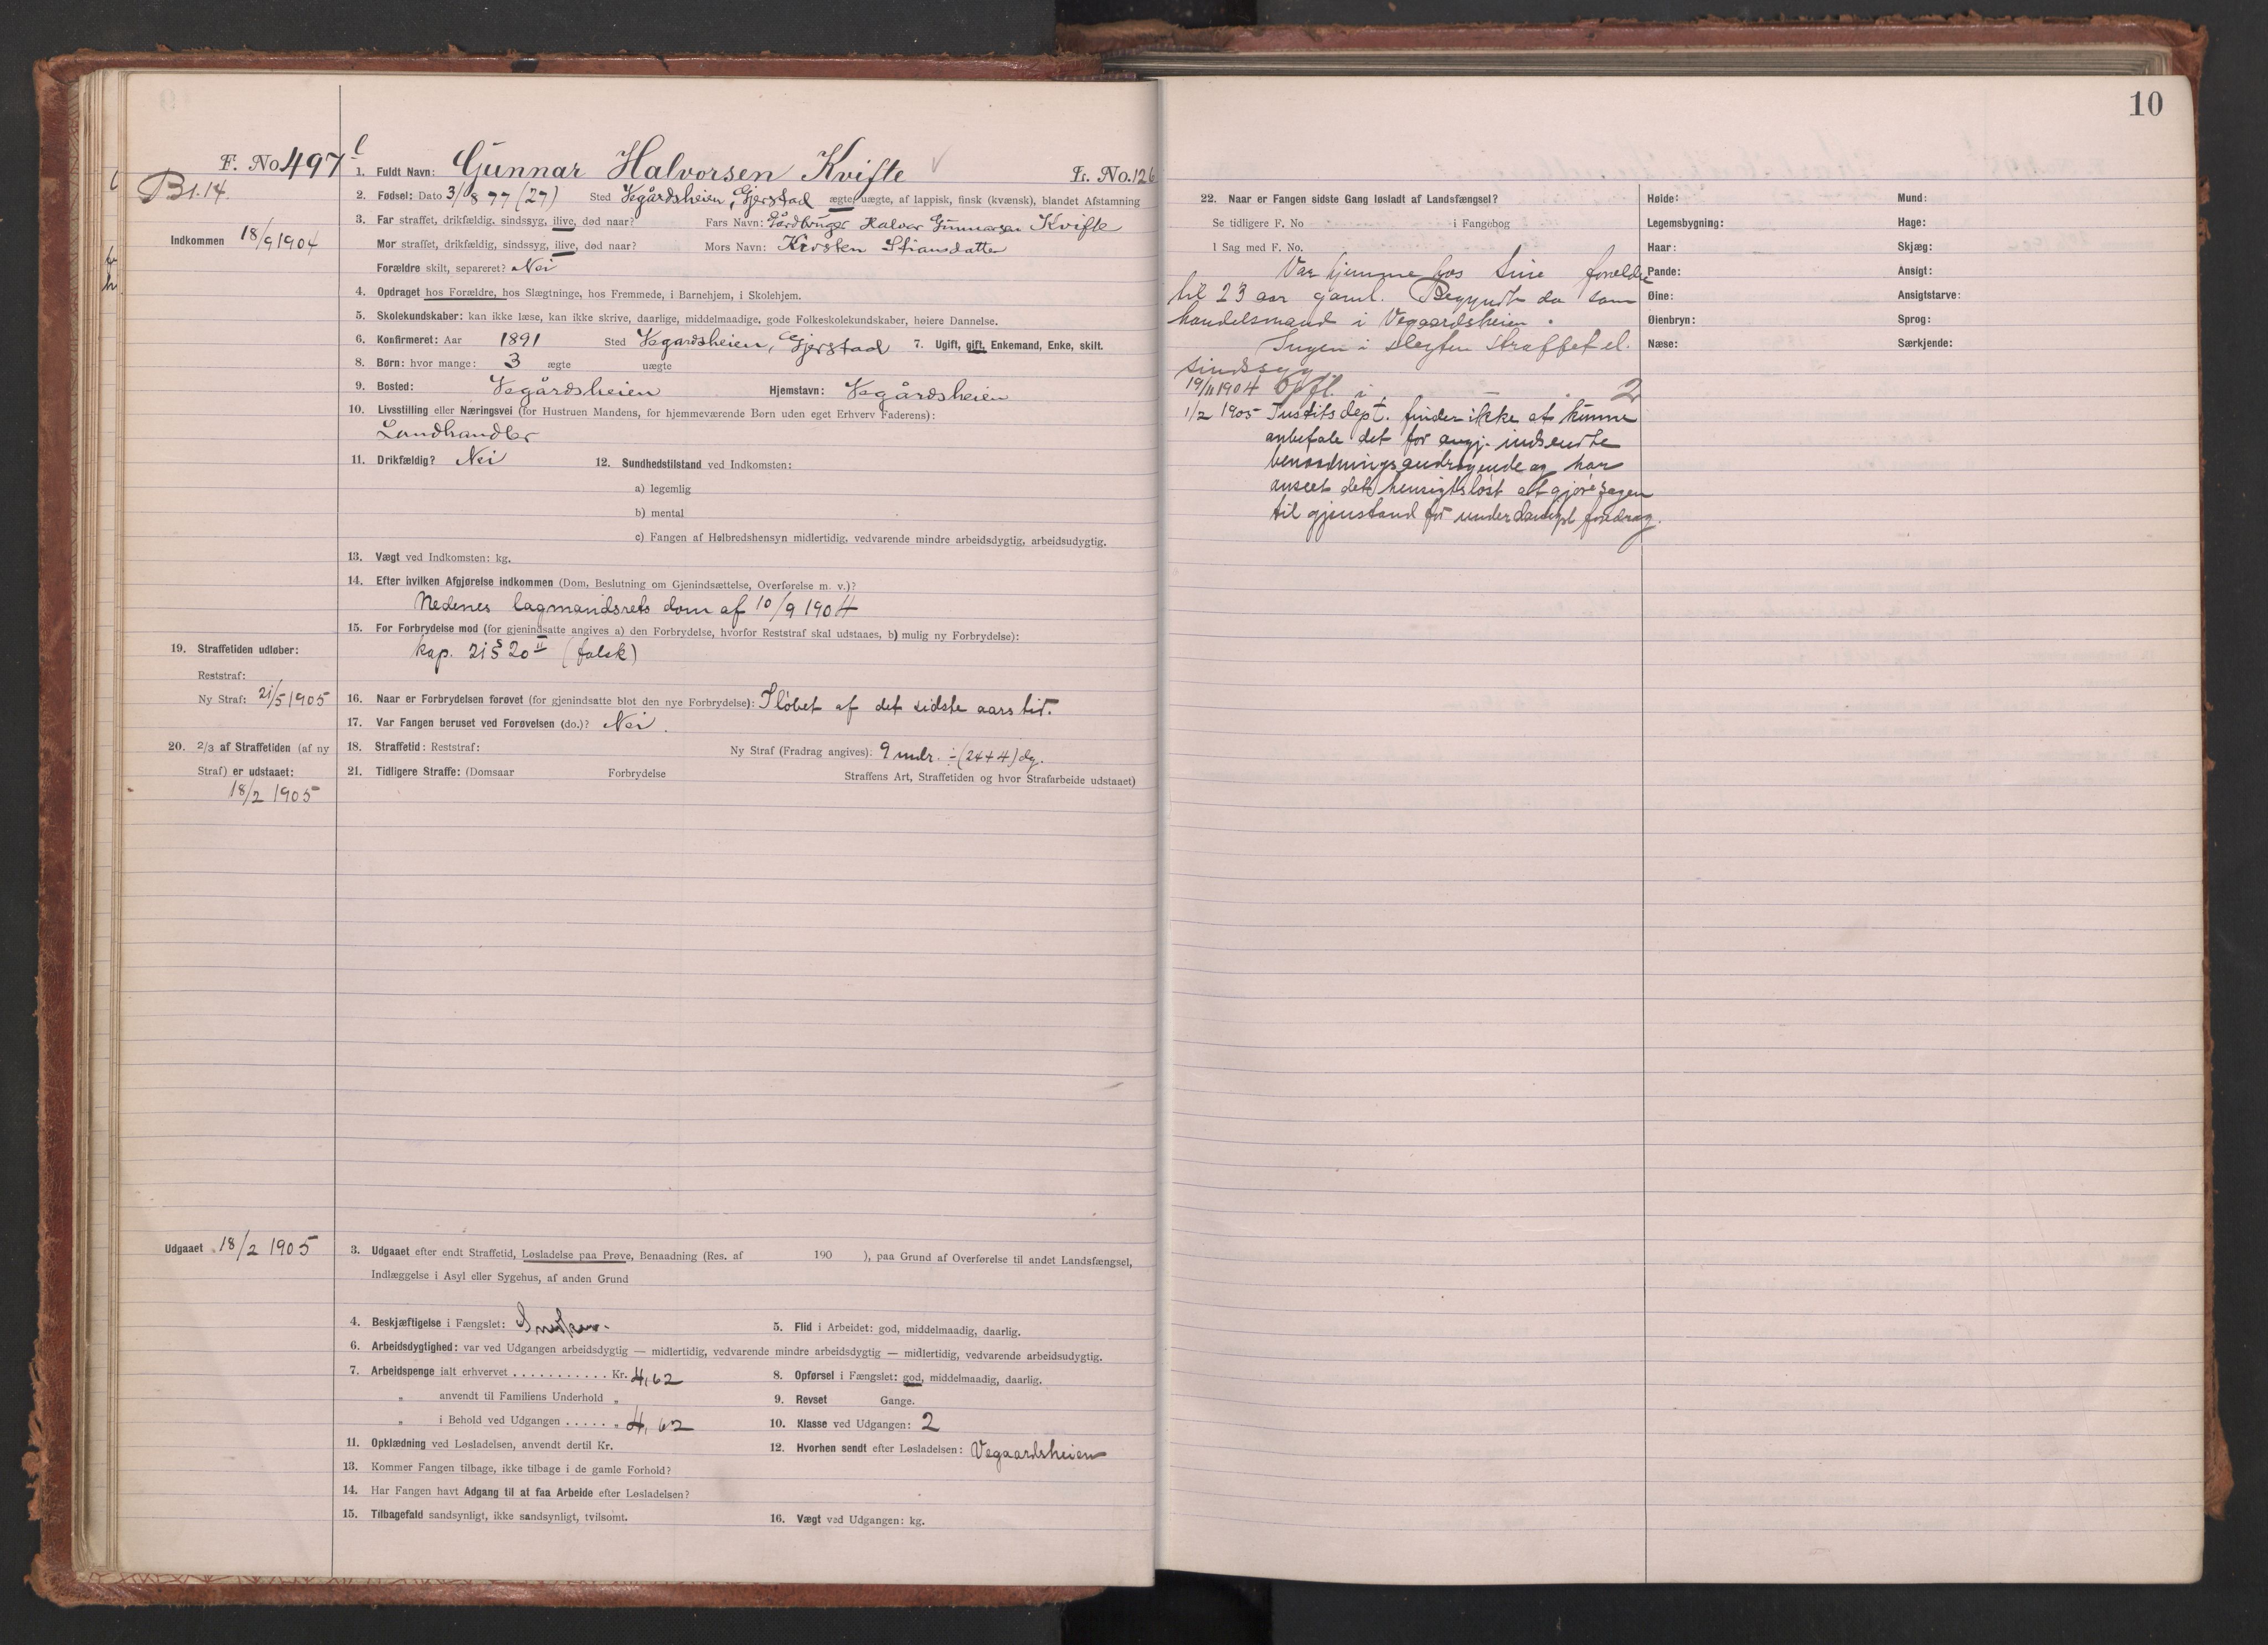 10
F. No 497
Bl. 14.
Indkommen 18/9 1904
1. Fuldt Navn: Gunnar Halvorsen Kvifte Fs. No. 126
2. Fødsel: Dato 3/8 77 (27) Sted Vegårdsheien, Gjerstad ægte, uægte, af lappisk, finsk (kvænsk), blandet Afstamning
3. Far straffet, drikfældig, sindssyg, ilive, død naar? Fars Navn: Gårdbruger Halvor Gunnarsen Kvifte
Mor straffet, drikfældig, sindssyg, ilive, død naar? Mors Navn: Kirsten Stiansdatter
Forældre skilt, separeret? Nei
4. Opdraget hos Forældre, hos Slægtninge, hos Fremmede, i Barnehjem, i Skolehjem.
5. Skolekundskaber: kan ikke læse, kan ikke skrive, daarlige, middelmaadige, gode Folkeskolekundskaber, høiere Dannelse.
6. Konfirmeret: Aar 1891 Sted Vegardsheien, Gjerstad 7. Ugift, gift, Enkemand, Enke, skilt.
8. Børn: hvor mange: 3 ægte uægte
9. Bosted: Vegårdsheien Hjemstavn: Vegårdsheien
10. Livsstilling eller Næringsvei (for Hustruen Mandens, for hjemmeværende Børn uden eget Erhverv Faderens):
Landhandler
11. Drikfældig? Nei 12. Sundhedstilstand ved Indkomsten:
a) legemlig
b) mental
c) Fangen af Helbredshensyn midlertidig, vedvarende mindre arbeidsdygtig, arbeidsudygtig.
13. Vægt ved Indkomsten: kg.
14. Efter hvilken Afgjørelse indkommen (Dom, Beslutning om Gjenindsættelse, Overførelse m. v.)?
Nedenes lagmandsrets dom af 10/9 1904
15. For Forbrydelse mod (for gjenindsatte angives a) den Forbrydelse, hvorfor Reststraf skal udstaaes, b) mulig ny Forbrydelse):
kap. 21 § 20 II (falsk)
19. Straffetiden udløber:
Reststraf:
Ny Straf: 21/5 1905
16. Naar er Forbrydelsen forøvet (for gjenindsatte blot den nye Forbrydelse): I løbet af det sidste aars tid.
17. Var Fangen beruset ved Forøvelsen (do.)? Nei.
20. 2/3 af Straffetiden (af ny
Straf) er udstaaet:
18/2 1905
18. Straffetid: Reststraf: Ny Straf (Fradrag angives): 9 mdr. ÷ (24+4) dg.
21. Tidligere Straffe: (Domsaar Forbrydelse Straffens Art, Straffetiden og hvor Strafarbeide udstaaet)
Udgaaet 18/2 1905
3. Udgaaet efter endt Straffetid, Løsladelse paa Prøve, Benaadning (Res. af 190 ), paa Grund af Overførelse til andet Landsfængsel,
Indlæggelse i Asyl eller Sygehus, af anden Grund
4. Beskjæftigelse i Fængslet: Snedker. 5. Flid i Arbeidet: god, middelmaadig, daarlig.
6. Arbeidsdygtighed: var ved Udgangen arbeidsdygtig — midlertidig, vedvarende mindre arbeidsdygtig — midlertidig, vedvarende arbeidsudygtig.
7. Arbeidspenge ialt erhvervet . . . . . . . . . . . Kr. 4,62 8. Opførsel i Fængslet: god, middelmaadig, daarlig.
„ anvendt til Familiens Underhold „ 9. Revset Gange.
„ i Behold ved Udgangen . . . . . „ 4,62 10. Klasse ved Udgangen: 2
11. Opklædning ved Løsladelsen, anvendt dertil Kr. 12. Hvorhen sendt efter Løsladelsen: Vegaardsheien
13. Kommer Fangen tilbage, ikke tilbage i de gamle Forhold?
14. Har Fangen havt Adgang til at faa Arbeide efter Løsladelsen?
15. Tilbagefald sandsynligt, ikke sandsynligt, tvilsomt. 16. Vægt ved Udgangen: kg.
22. Naar er Fangen sidste Gang løsladt af Landsfængsel?
Se tidligere F. No i Fangebog
I Sag med F. No.
Var hjemme hos sine forældre
til 23 aar gaml. Begyndte da som
handelsmand i Vegaardsheien.
Ingen i slegten straffet el.
sindssyg.
19/11 1904 Opfl. i 2
1/2 1905 Justitsdept. finder ikke at kunne
anbefale det for angj. indsendte
benaadningsandragende og har
anseet det hensigtsløst at gjøre sagen
til gjenstand for underdanigst foredrag.
Høide: Mund:
Legemsbygning: Hage:
Haar: Skjæg:
Pande: Ansigt:
Øine: Ansigtstarve:
Øienbryn: Sprog:
Næse: Særkjende: